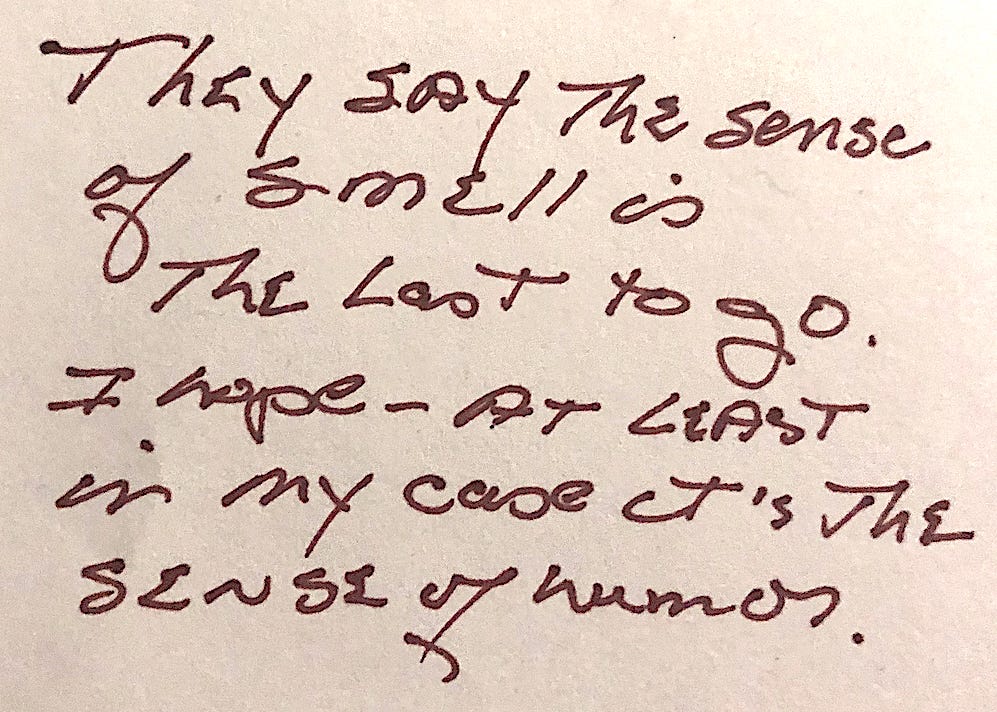 They say the sense
of smell is
the last to go.
I hope - at least
in my case it's the
sense of humor.